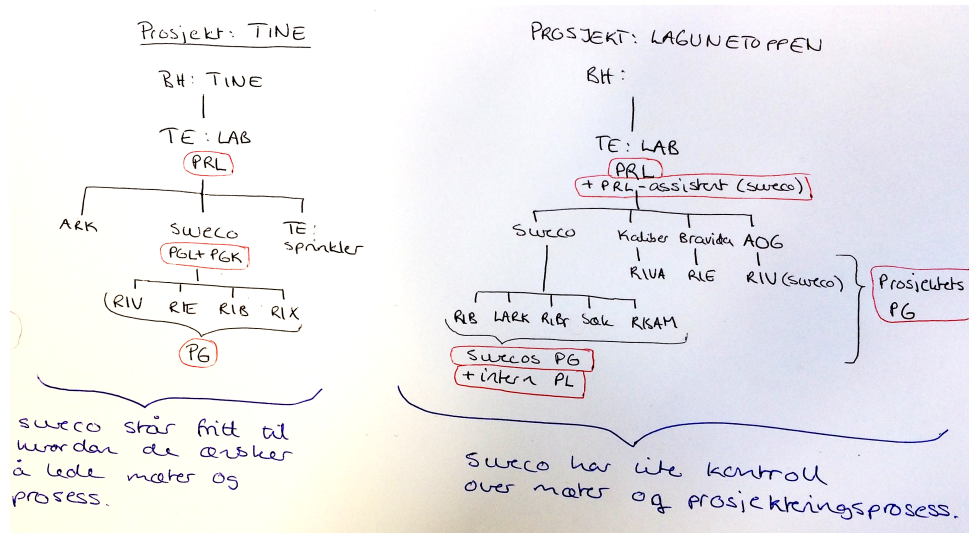 Prosjekt: TINE
BH: TINE
TE: LAB
PRL
ARK
Sweco
TE:
sprinkler
PGL+ PGK
(RIV RIE RIB RIX
PG
sweco står fritt til
hvordan de ønsker
å lede møter og
prosess.
PROSJEKT: LAGUNETOPPEN
BH:
TE: LAB
PRL
+ PRL-assistent (sweco)
Sweco Kaliber Bravida AOG
RIVA RIE RIV (sweco)
RIB LARK RIBr Søk RISAM
Prosjektets
PG
Swecos PG
+ intern PL
Sweco har lite kontroll
over møter og prosjekteringsprosess.